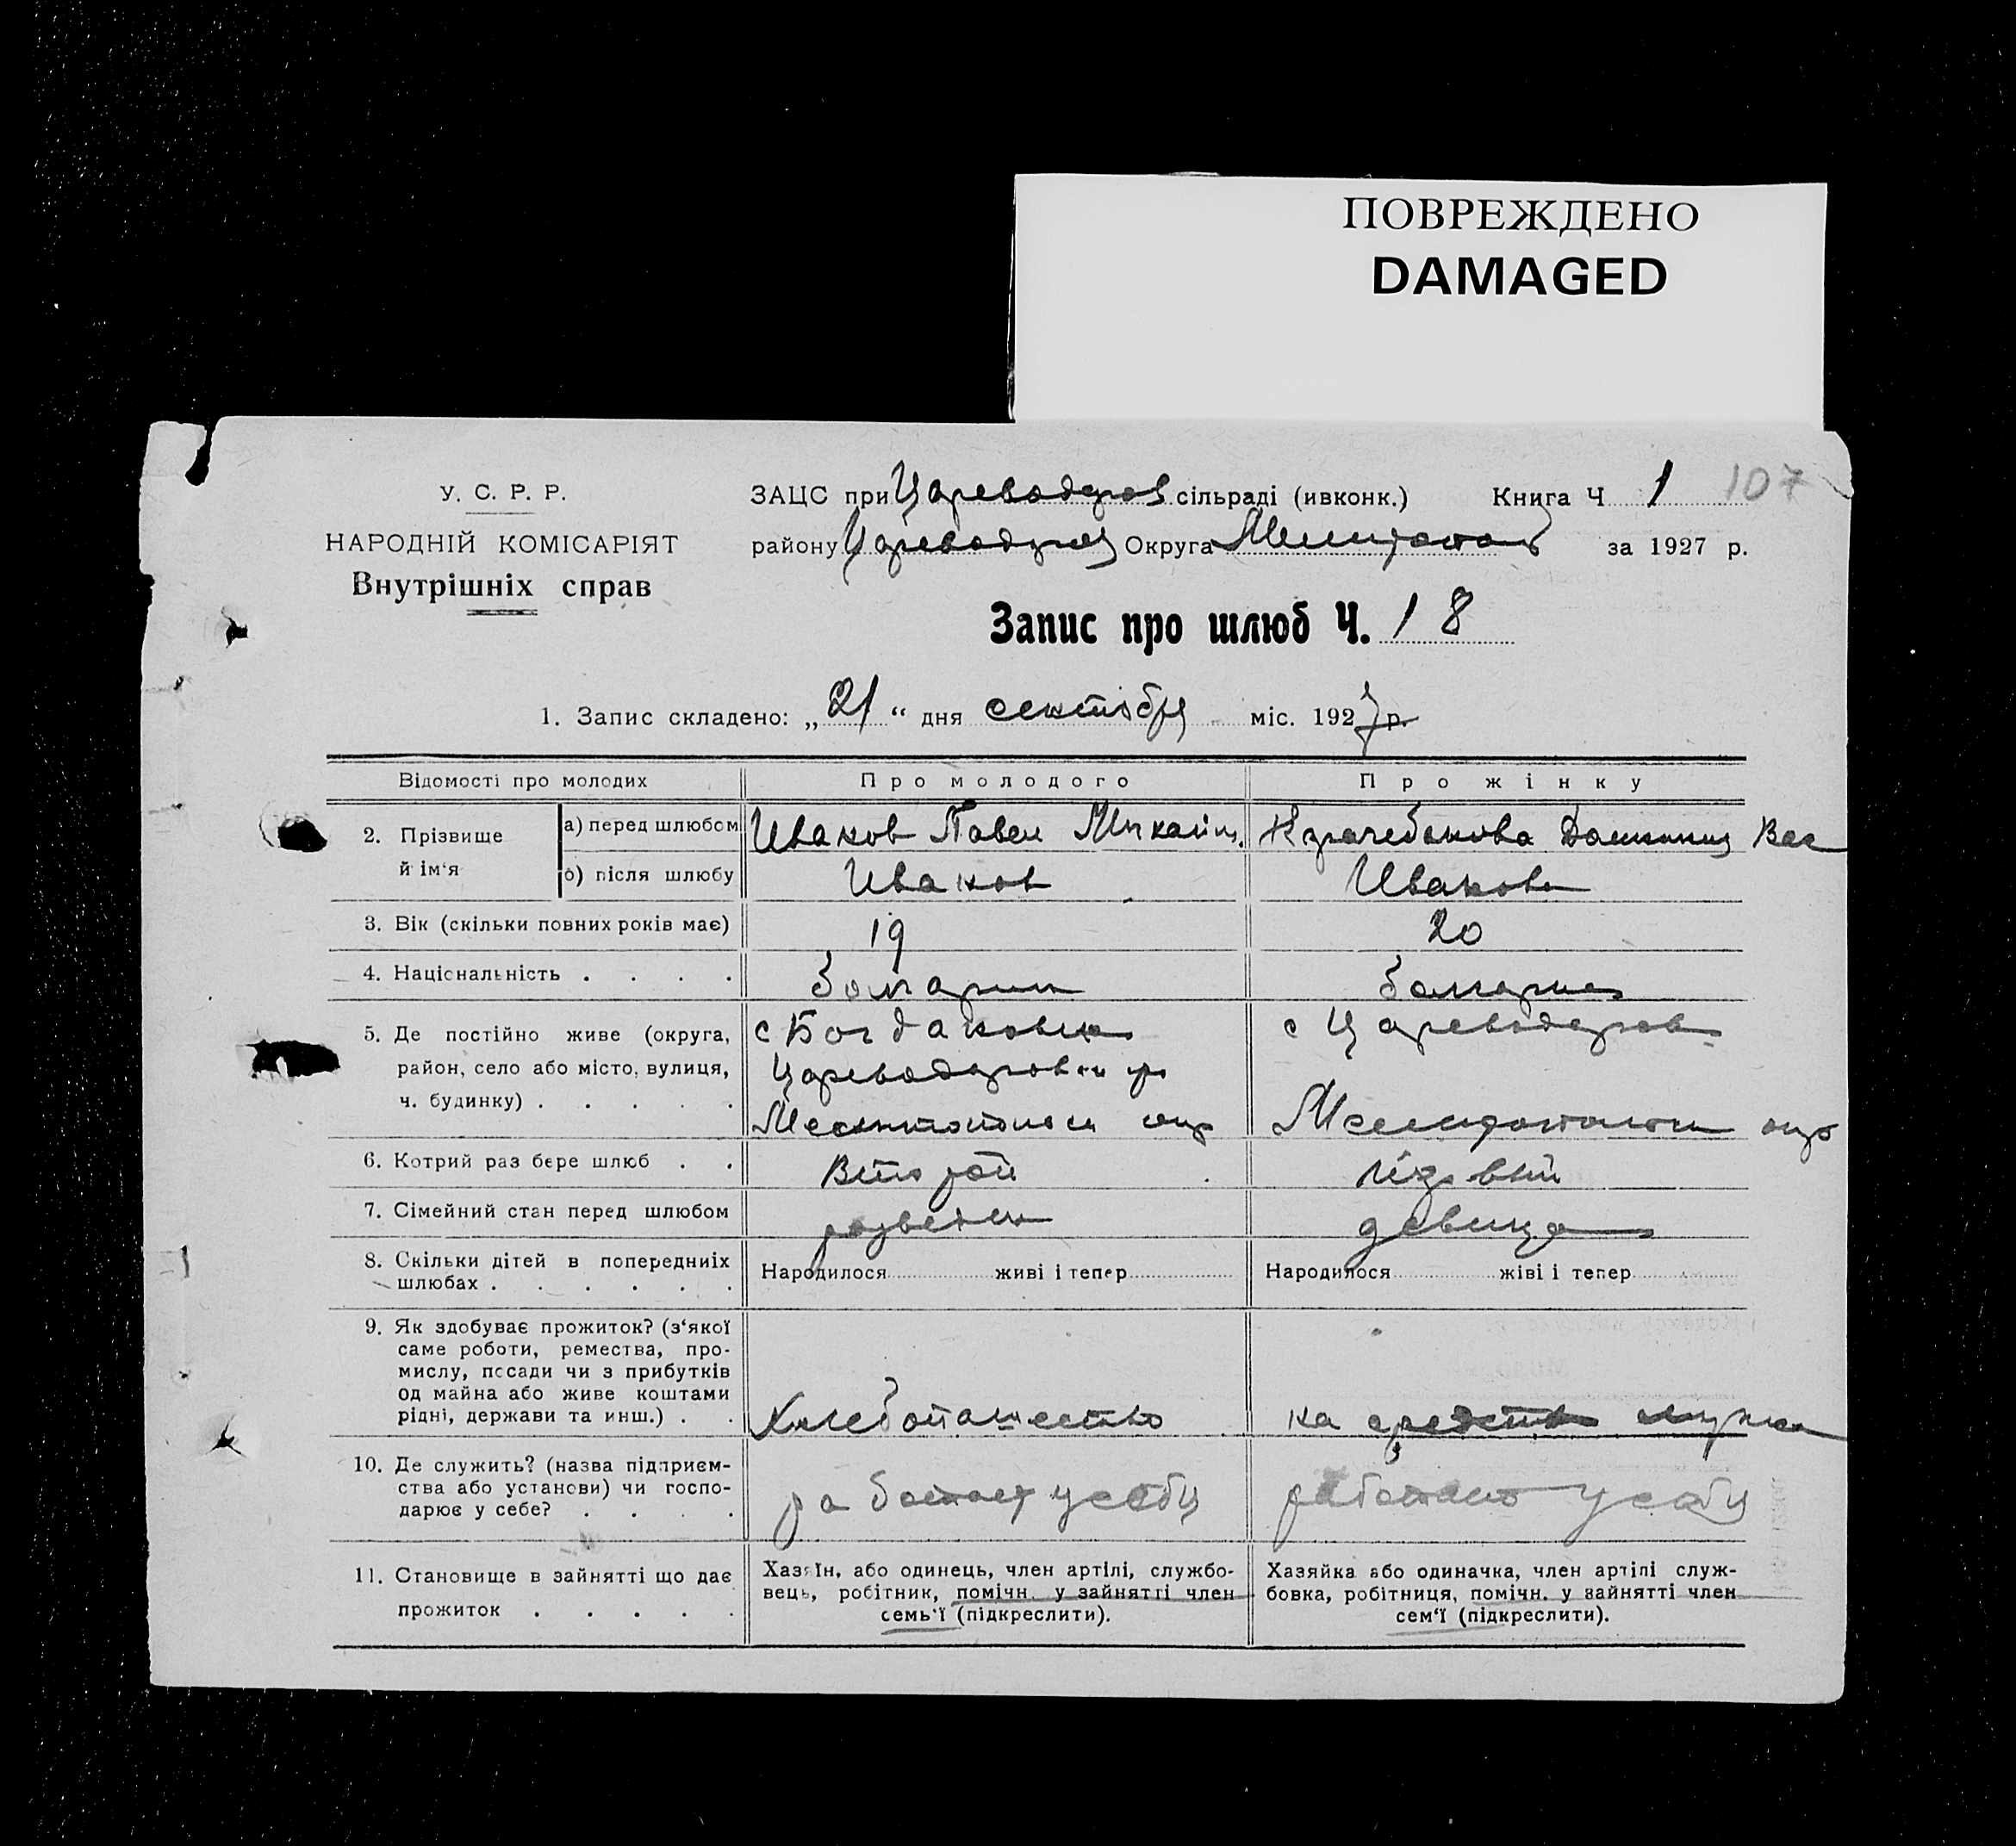 ПОВРЕЖДЕНО
DAMAGED
У. С. Р. Р.
НАРОДНІЙ КОМІСАРІЯТ
Внутрішніх справ
ЗАЦС при Цареводаров сільраді (ивконк.) Книга Ч 1 107
району Цареводаров Округа Мелитопол за 1927 р.
Запис про шлюб Ч. 18
1. Запис складено: „21“ дня сентября міс. 1927 р.
Відомості про молодих Про молодого Про жінку
2. Прізвище й ім‘я
а) перед шлюбом Иванов Павел Михайл. Домникия Вас
б) після шлюбу Иванов Иванова
3. Вік (скільки повних років має) 19 20
4. Національність . . . . болгарин болгарка
5. Де постійно живе (округа, с Богдановка с Цареводаровка
район, село або місто, вулиця, Цареводаровки рн
ч. будинку) . . . . . Мелитополь окр Мелитопольск окр
6. Котрий раз бере шлюб . . Второй первый
7. Сімейний стан перед шлюбом разведен девица
8. Скільки дітей в попередниіх Народилося живі і тепер Народилося жіві і тепер
шлюбах . . . . . .
9. Як здобуває прожиток? (з‘якої
саме роботи, ремества, про-
мислу, посади чи з прибутків
од майна або живе коштами
рідні, держави та инш.) . . Хлебопашество на средства мужа
10. Де служить? (назва підприєм-
ства або установи) чи госпо- работает у себя работает у себя
дарює у себе? . . . .
11. Становище в зайнятті що дає Хазяїн, або одинець, член артілі, службо- Хазяйка або одиначка, член артілі служ-
прожиток . . . . . вець, робітник, помічн. у зайнятті член бовка, робітниця, помічн. у зайнятті член
семь‘ї (підкреслити). сем‘ї (підкреслити).